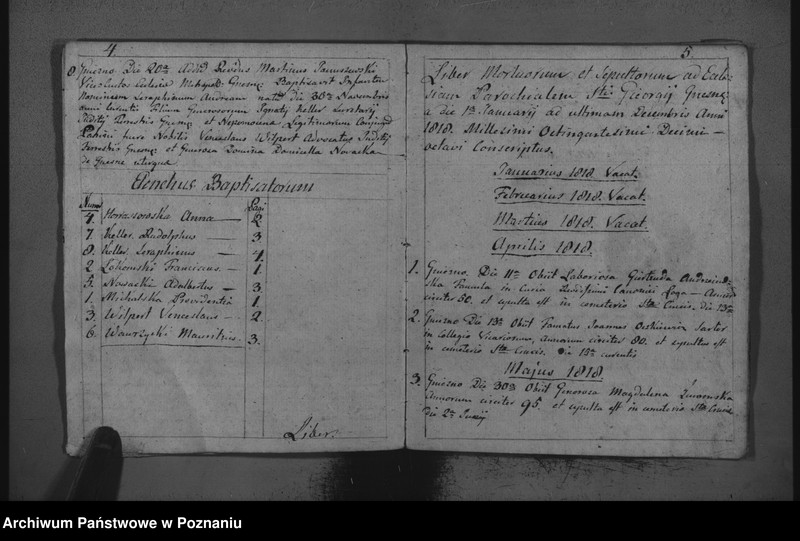 4.
8. Gnesno Die 20ma Admd Rvdus Martinus Januszewski
Vicarius Ecclesiae Metropol: Gnesn: Baptisavit Infantem
Nominem Seraphinum Andream natū die 30ma Novembris
anni currentis Filium Generosorum Ignatij Keller
Judicij Terrestris Gnesn: et Nepomucena Legitimorum Conjug
Patrini fuere Nobilis Venceslaus Wilpert Advocatus Judicij
Terrestris Gnesn: et Generosa Domina Dominicella Novacka
de Gnesno uterque
Elenchus Baptisatorum
Numr Pagi
4. Horassowska Anna — 2
7 Keller Rudolphus — 3
8. Keller Seraphinus — 4.
2 Franciscus — 1.
5. Nowacki Adalbertus — 3
1. Michalska Providentia 1.
3. Wilpert Venceslaus — 2.
6. Wawrzycki Mauritius. 3.
Liber.
5.
Liber Mortuorum et Sepultorum ad Eccle-
siam Parochialem Sti Georgij Gnesn:
a die 1ma Januarij ad ultimam Decembris Anni
1818. Millesimi Octingentesimi Decimi —
octavi Conscriptus.
Januarius 1818 Vacat.
Februarius 1818. Vacat.
Martius 1818. Vacat.
Aprilis 1818.
1. Gnesno. Die 11ma Obiit Laboriosa Gertruda
ska Famula in Curia Canonici —
circiter 50. et sepulta est in cemeterio Stae Crucis. die 13ma
2. Gnesno Die 13ma Obiit Famatus Joannes Sartor
in Collegio Vicariorum, Annorum circiter 80. et sepultus est
in cemeterio Stae Crucis. Die 15ma currentis
Majus 1818
3. Gnesno Die 30ma Obiit Generosa Magdalena Żurowska
Annorum circiter 95. et sepulta est in cemeterio Stae Crucis
die 2da Junij
Archiwum Państwowe w Poznaniu